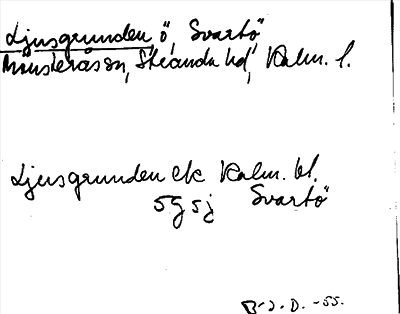 Ljusgrunden ö, Svartö
Mönsterås sn, Stranda hd, Kalm. l.
Ljusgrunden ek Kalm. bl.
5g5j Svartö
B-2.D.-55.